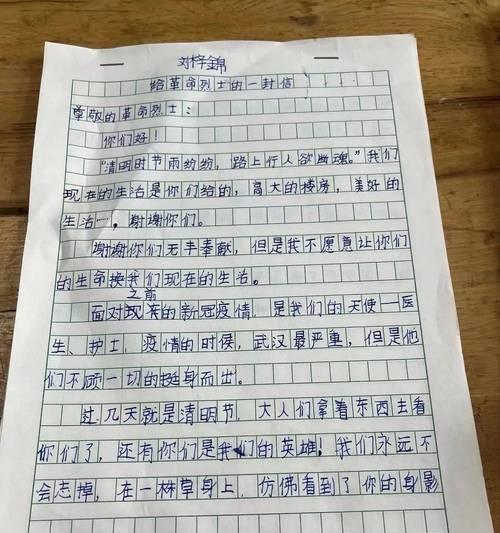 刘梓锦
给革命烈士的一封信
尊敬的革命烈士：
你们好！
“清明时节雨纷纷，路上行人欲幽魂。”我们
现在的生活是你们给的，高大的楼房，美好的
生活……，谢谢你们。
谢谢你们无丰奉献，但是我不愿意让你们
的生命换我们现在的生活。
之前
面对现在的新冠疫情，是我们的天使——医
生、护士，疫情的时候，武汉最严重，但是他
们不顾一切的挺身而出。
过几天就是清明节，大人们拿着东西去看
你们了，还有你们是我们的英雄！我们永远不
会忘掉，在一株草身上，仿佛看到了你的身影